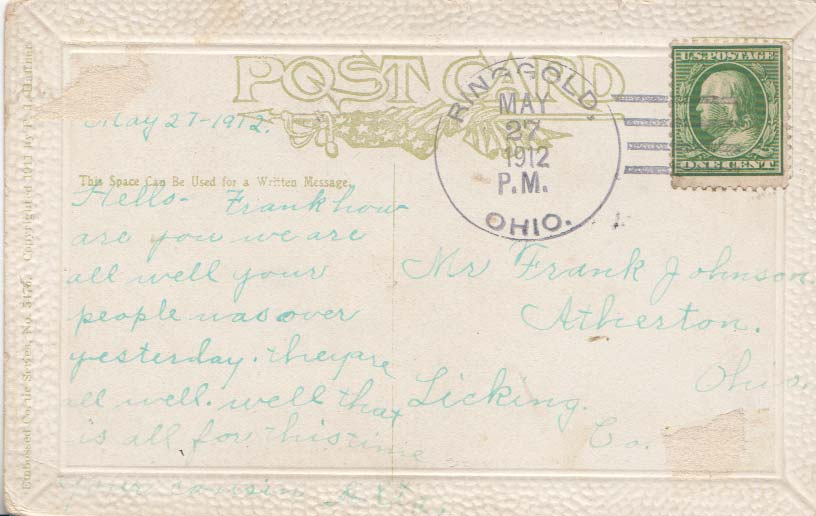 POST CARD
U.S. POSTAGE
ONE CENT
RINGGOLD,
MAY
27
1912
P.M.
OHIO.
May 27-1912.
This Space Can Be Used for a Written Message.
Hello- Frank how
are you we are
all well your
people was over
yesterday. they are
all well. well that
is all for this time
your cousin
Mr Frank Johnson.
Atherton.
Ohio.
Licking.
Co.
Embossed Comic Series, No. Copyright 1911 by